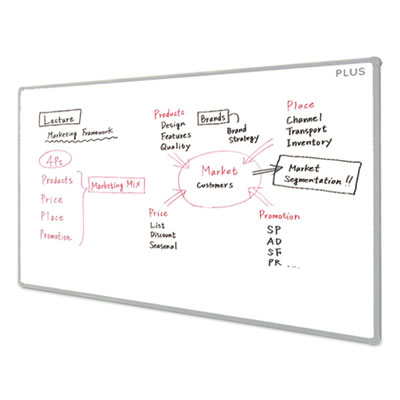 PLUS
Lecture
Marketing Framework
4Ps
Products
Price
Place
Promotion
Marketing Mix
Products
Design
Features
Quality
Brands
Brand
Strategy
Place
Channel
Transport
Inventory
Market
Customers
Market
Segmentation !!
Price
List
Discount
Seasonal
Promotion
SP
AD
SF
PR ....